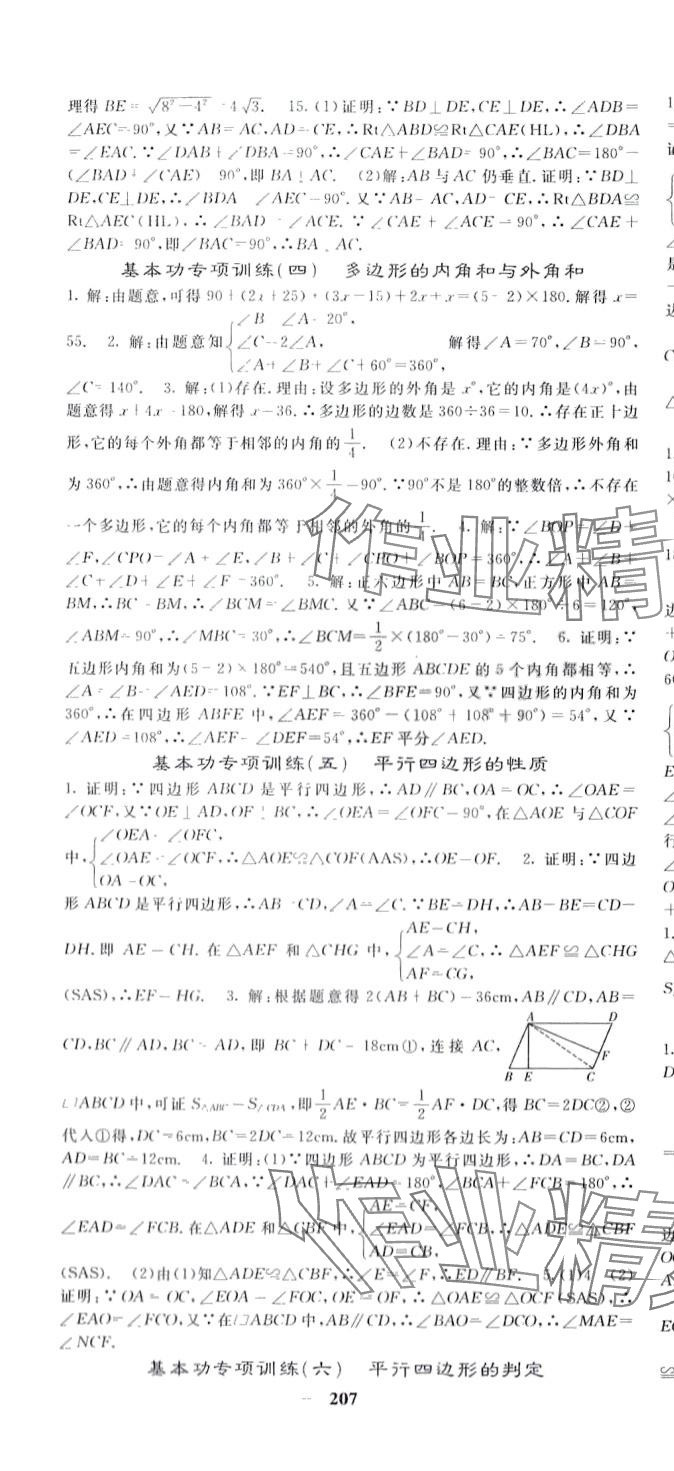 理得 BE=√(8²-4²)=4√3. 15.(1)证明:∵BD⊥DE,CE⊥DE,∴∠ADB=
∠AEC=90°,又∵AB=AC,AD=CE,∴Rt△ABD≌Rt△CAE(HL),∴∠DBA
=∠EAC.∵∠DAB+∠DBA=90°,∴∠CAE+∠BAD=90°,∴∠BAC=180°-
(∠BAD+∠CAE) 90°,即BA⊥AC. (2)解:AB与AC仍垂直.证明:∵BD⊥
DE,CE⊥DE,∴∠BDA ∠AEC=90°.又∵AB=AC,AD=CE,∴Rt△BDA≌
Rt△AEC(HL),∴∠BAD=∠ACE.∵∠CAE+∠ACE=90°,∴∠CAE+
∠BAD=90°,即∠BAC=90°,∴BA⊥AC.
基本功专项训练(四) 多边形的内角和与外角和
1. 解:由题意,可得90+(2x+25)+(3x-15)+2x+x=(5-2)×180.解得x=
55. 2. 解:由题意知{∠B ∠A=20°,
∠C=2∠A,
∠A+∠B+∠C+60°=360°,
解得∠A=70°,∠B=90°,
∠C=140°. 3. 解:(1)存在.理由:设多边形的外角是x°,它的内角是(4x)°,由
题意得x+4x=180,解得x=36.∴多边形的边数是360÷36=10.∴存在正十边
形,它的每个外角都等于相邻的内角的1/4. (2)不存在.理由:∵多边形外角和
为360°,∴由题意得内角和为360°×1/4=90°.∵90°不是180°的整数倍,∴不存在
一个多边形,它的每个内角都等于相邻的外角的1/4. 4. 解:∵∠BOP=∠D+
∠F,∠CPO=∠A+∠E,∠B+∠C+∠CPO+∠BOP=360°,∴∠A+∠B+
∠C+∠D+∠E+∠F=360°. 5. 解:正六边形中AB=BC,正方形中AB=
BM,∴BC=BM,∴∠BCM=∠BMC.又∵∠ABC=(6-2)×180°÷6=120°,
∠ABM=90°,∴∠MBC=30°,∴∠BCM=1/2×(180°-30°)=75°. 6. 证明:∵
五边形内角和为(5-2)×180°=540°,且五边形ABCDE的5个内角都相等,∴
∠A=∠B=∠AED=108°.∵EF⊥BC,∴∠BFE=90°.又∵四边形的内角和为
360°,∴在四边形ABFE中,∠AEF=360°-(108°+108°+90°)=54°,又∵
∠AED=108°,∴∠AEF=∠DEF=54°,∴EF平分∠AED.
基本功专项训练(五) 平行四边形的性质
1. 证明:∵四边形ABCD是平行四边形,∴AD∥BC,OA=OC,∴∠OAE=
∠OCF,又∵OE⊥AD,OF⊥BC,∴∠OEA=∠OFC=90°,在△AOE与△COF
中,{∠OEA=∠OFC,
∠OAE=∠OCF,
OA=OC,
∴△AOE≌△COF(AAS),∴OE=OF. 2. 证明:∵四边
形ABCD是平行四边形,∴AB=CD,∠A=∠C.∵BE=DH,∴AB-BE=CD-
DH.即AE=CH.在△AEF和△CHG中,{AE=CH,
∠A=∠C,
AF=CG,
∴△AEF≌△CHG
(SAS),∴EF=HG. 3. 解:根据题意得2(AB+BC)=36cm,AB∥CD,AB=
CD,BC∥AD,BC=AD,即BC+DC=18cm①,连接AC,
A D
F
B E C
▱ABCD中,可证S△ABC=S△CDA,即1/2AE·BC=1/2AF·DC,得BC=2DC②,②
代入①得,DC=6cm,BC=2DC=12cm.故平行四边形各边长为:AB=CD=6cm,
AD=BC=12cm. 4. 证明:(1)∵四边形ABCD为平行四边形,∴DA=BC,DA
∥BC,∴∠DAC=∠BCA,∵∠DAC+∠EAD=180°,∠BCA+∠FCB=180°,∴
∠EAD=∠FCB.在△ADE和△CBF中,{AE=CF,
∠EAD=∠FCB,
AD=CB,
∴△ADE≌△CBF
(SAS). (2)由(1)知△ADE≌△CBF,∴∠E=∠F,∴ED∥BF. 5.(1)4 (2)
证明:∵OA=OC,∠EOA=∠FOC,OE=OF,∴△OAE≌△OCF(SAS),∴
∠EAO=∠FCO,又∵在▱ABCD中,AB∥CD,∴∠BAO=∠DCO,∴∠MAE=
∠NCF.
基本功专项训练(六) 平行四边形的判定
207
作业精
作业精